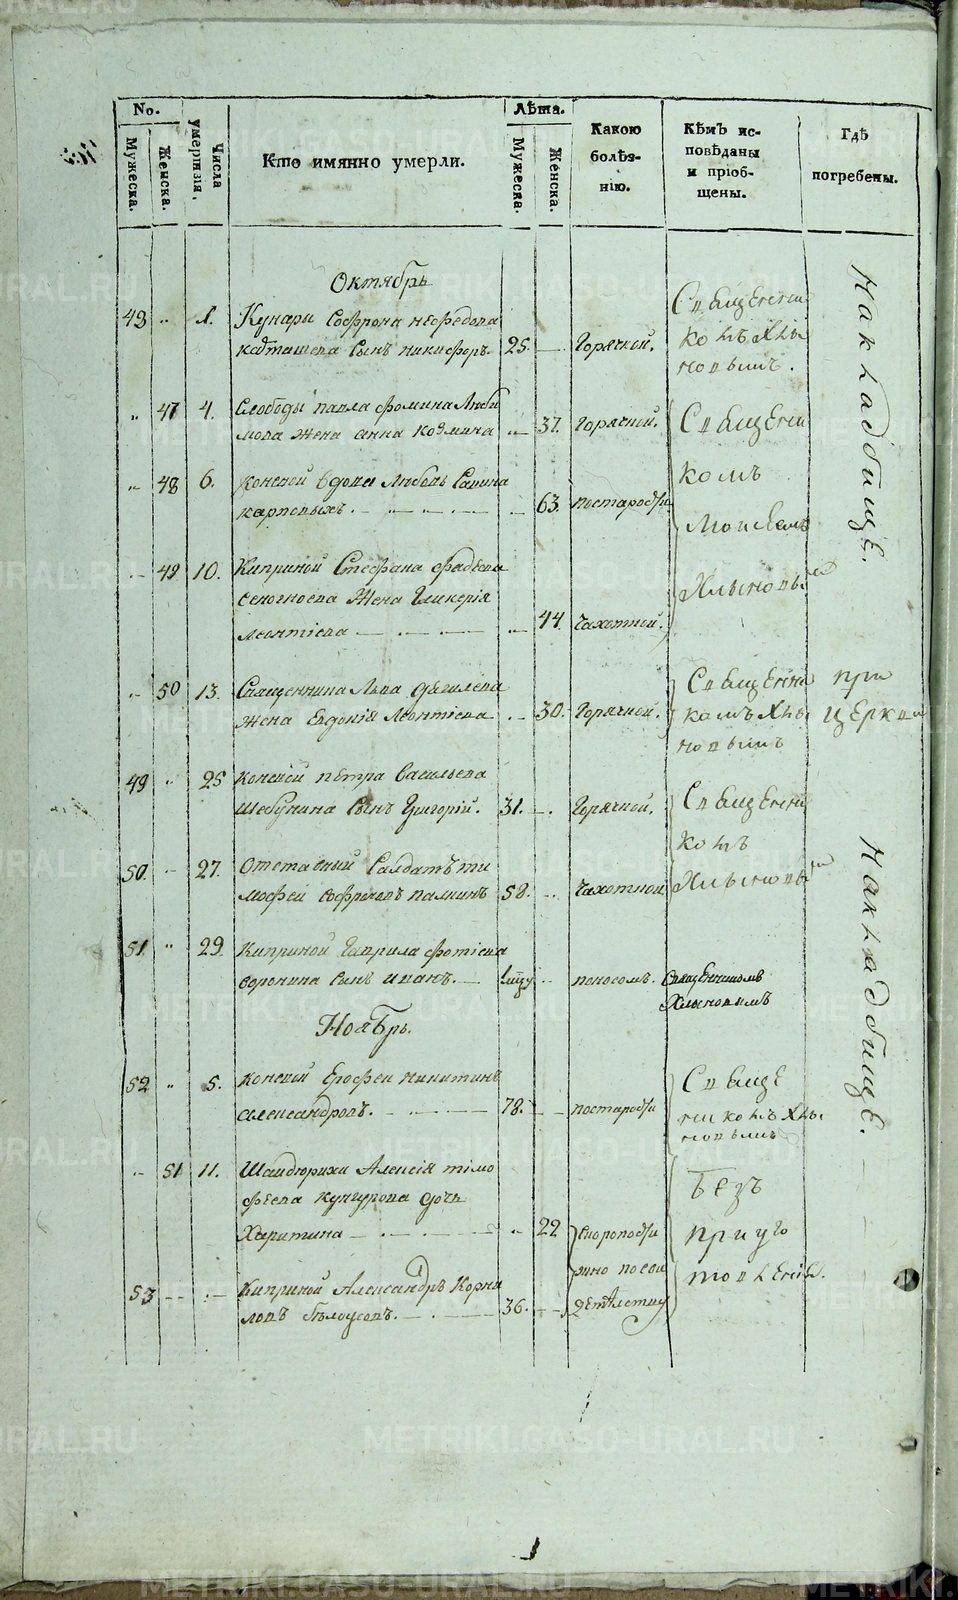 No.
Мужеска.
Женска.
Числа умерінія.
Кто имянно умерли.
Лѣта.
Мужеска.
Женска.
Какою
болѣз-
нію.
Кѣмъ ис-
повѣданы
и пріоб-
щены.
Гдѣ
погребены.
Октябрь
1. Кунары Софрона нефедова
сынъ никифоръ. 25. — Горячкой.
Священни
комъ Хлы
новымъ.
На кладбище.
„ 47 4. Слободы павла фомина Люби
мова жена анна козмина „ 37. Горячкой.
„ 48 6. коневой вдова Любовь Савина
карповыхъ. „ 63. постарости
„ 49 10. Киприной Стефана фадѣева
жена Гликерія
Леонтіева „ 44. Чахоткой.
Священни
комъ
Моисеемъ
Хлыновы
„ 50 13. Священника Льва
жена Евдокія Леонтіева „ 30. Горячкой.
Священни
комъ Хлы
новымъ
при
церкви
49 „ 25 коневой петра Васильева
Шебунина сынъ Григорій. 31. „ Горячкой.
50. „ 27. Отставный Салдатъ ти
мофей Софроновъ палкинъ 58. „ Чахоткой
Священни
комъ
Хлыновы
51. „ 29. Киприной Гаврила фотіева
воронина сынъ иванъ. „ поносомъ.
Священникомъ
Хлыновымъ
На кладбище.
Ноябрь.
52 „ 5. коневой Ерофеи никитинъ
александровъ. 78. — постарости
Свяще
никомъ Хлы
новымъ
„ 51 11. Шайдюрихи Алексія тимо
феева кунгурова дочь
Харитина „ 22
скоропости
жно
53 „ „ Киприной Александръ Корни
ловъ бѣлоусовъ. 36. „
безъ
приуго
товленія.